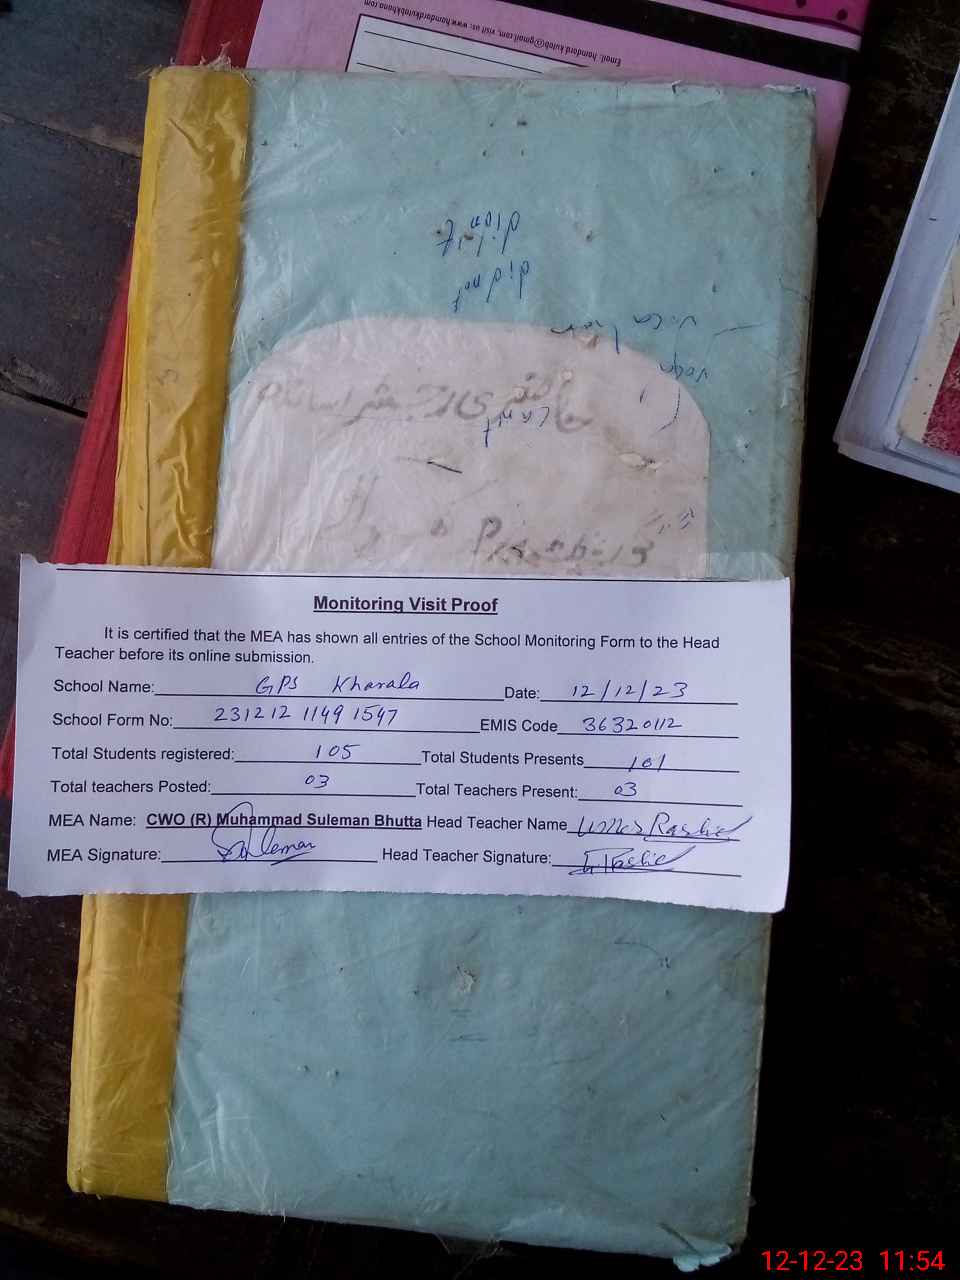 Email. hamdard kutab@gmail.com, visit us: www.hamdardkutabkhana.com
did not
Monitoring Visit Proof
It is certified that the MEA has shown all entries of the School Monitoring Form to the Head
Teacher before its online submission.
School Name: GPS Kharala Date: 12/12/23
School Form No: 231212 1149 1547 EMIS Code 36320112
Total Students registered: 105 Total Students Presents 101
Total teachers Posted: 03 Total Teachers Present: 03
MEA Name: CWO (R) Muhammad Suleman Bhutta Head Teacher Name Umer Rashid
MEA Signature: Suleman Head Teacher Signature: U Rashid
12-12-23 11:54